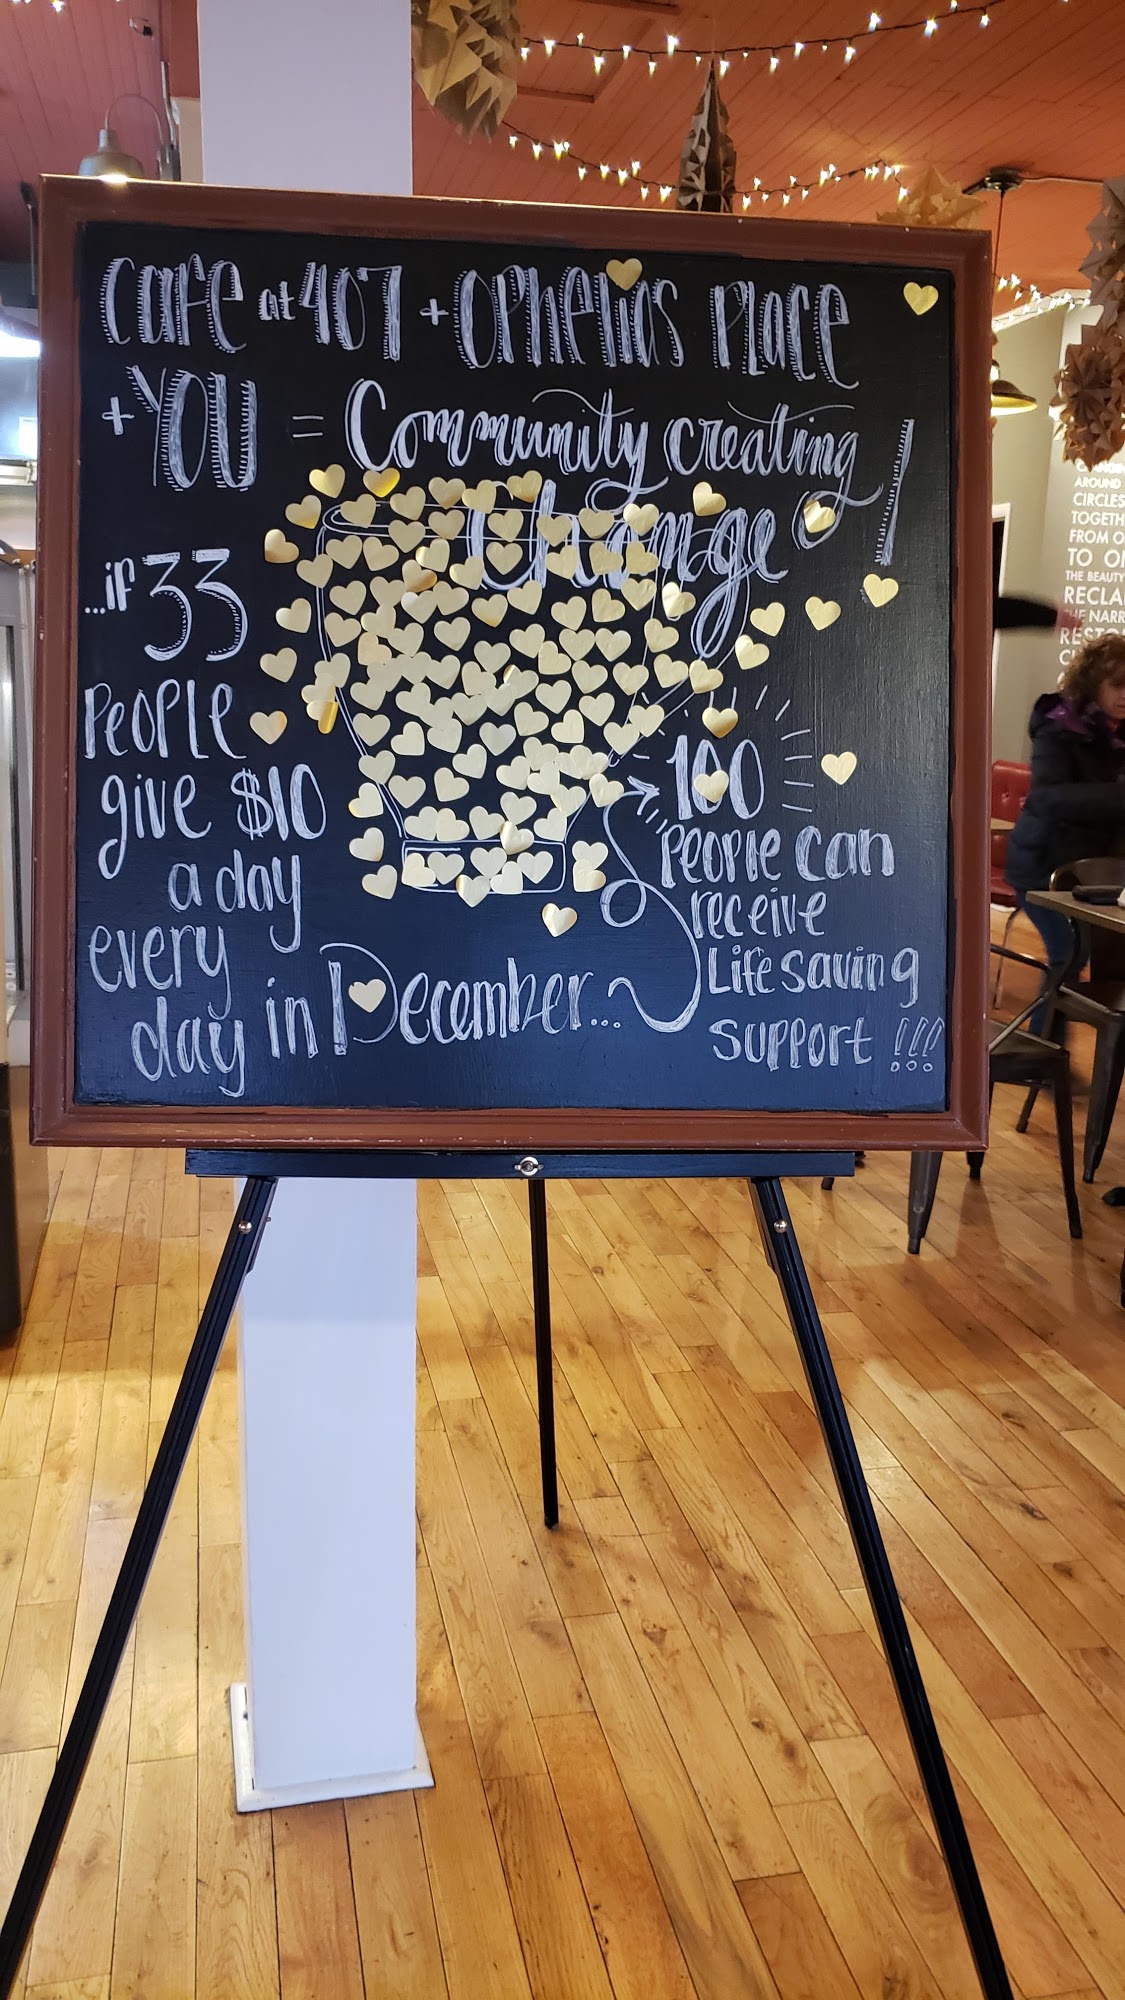 Cafe at 407 + Ophelia's Place
+ YOU = Community creating
Change!
...if 33
People
give $10
a day
every
day in December...
100
People can
receive
Life saving
support !!!
AROUND
CIRCLES
FROM
TO
THE BEAUTY